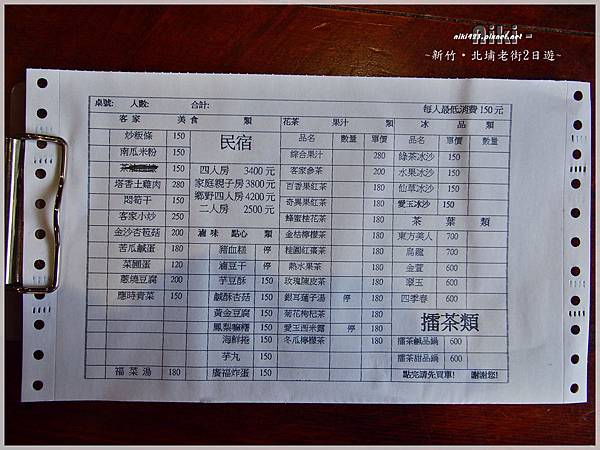 Niki -
niki423.pixnet.net
~新竹‧北埔老街2日遊~
桌號: 人數: 合計: 每人最低消費 150 元
客家 美食 類 花茶 果汁 類 冰 品 類
品名 數量 單價 品名 單價 數量
炒粄條 150
南瓜米粉 150
150
塔香土雞肉 280
悶筍干 150
客家小炒 250
金沙杏苞菇 200
苦瓜鹹蛋 180
菜圃蛋 120
蔥燒豆腐 200
應時青菜 150
福菜湯 180
民宿
四人房 3400 元
家庭親子房 3800 元
鄉野四人房 4200 元
二人房 2500 元
滷味 點心 類
豬血糕 停
滷豆干 停
芋豆酥 150
鹹酥杏菇 150
黃金豆腐 150
鳳梨嘛糬 150
海鮮捲 150
芋丸 150
廣福炸蛋 150
綜合果汁 280
客家參茶 200
百香果紅茶 180
奇異果紅茶 180
蜂蜜桂花茶 180
金桔檸檬茶 180
桂圓紅棗茶 180
熱水果茶 180
玫瑰陳皮茶 180
銀耳蓮子湯 停 180
菊花枸杞茶 180
愛玉西米露 停 180
冬瓜檸檬茶 180
綠茶冰沙 150
水果冰沙 150
仙草冰沙 150
愛玉冰沙 150
茶 葉 類
東方美人 700
烏龍 700
金萱 600
翠玉 600
四季春 600
擂茶類
擂茶鹹品鍋 600
擂茶甜品鍋 600
點完請先買單! 謝謝您!